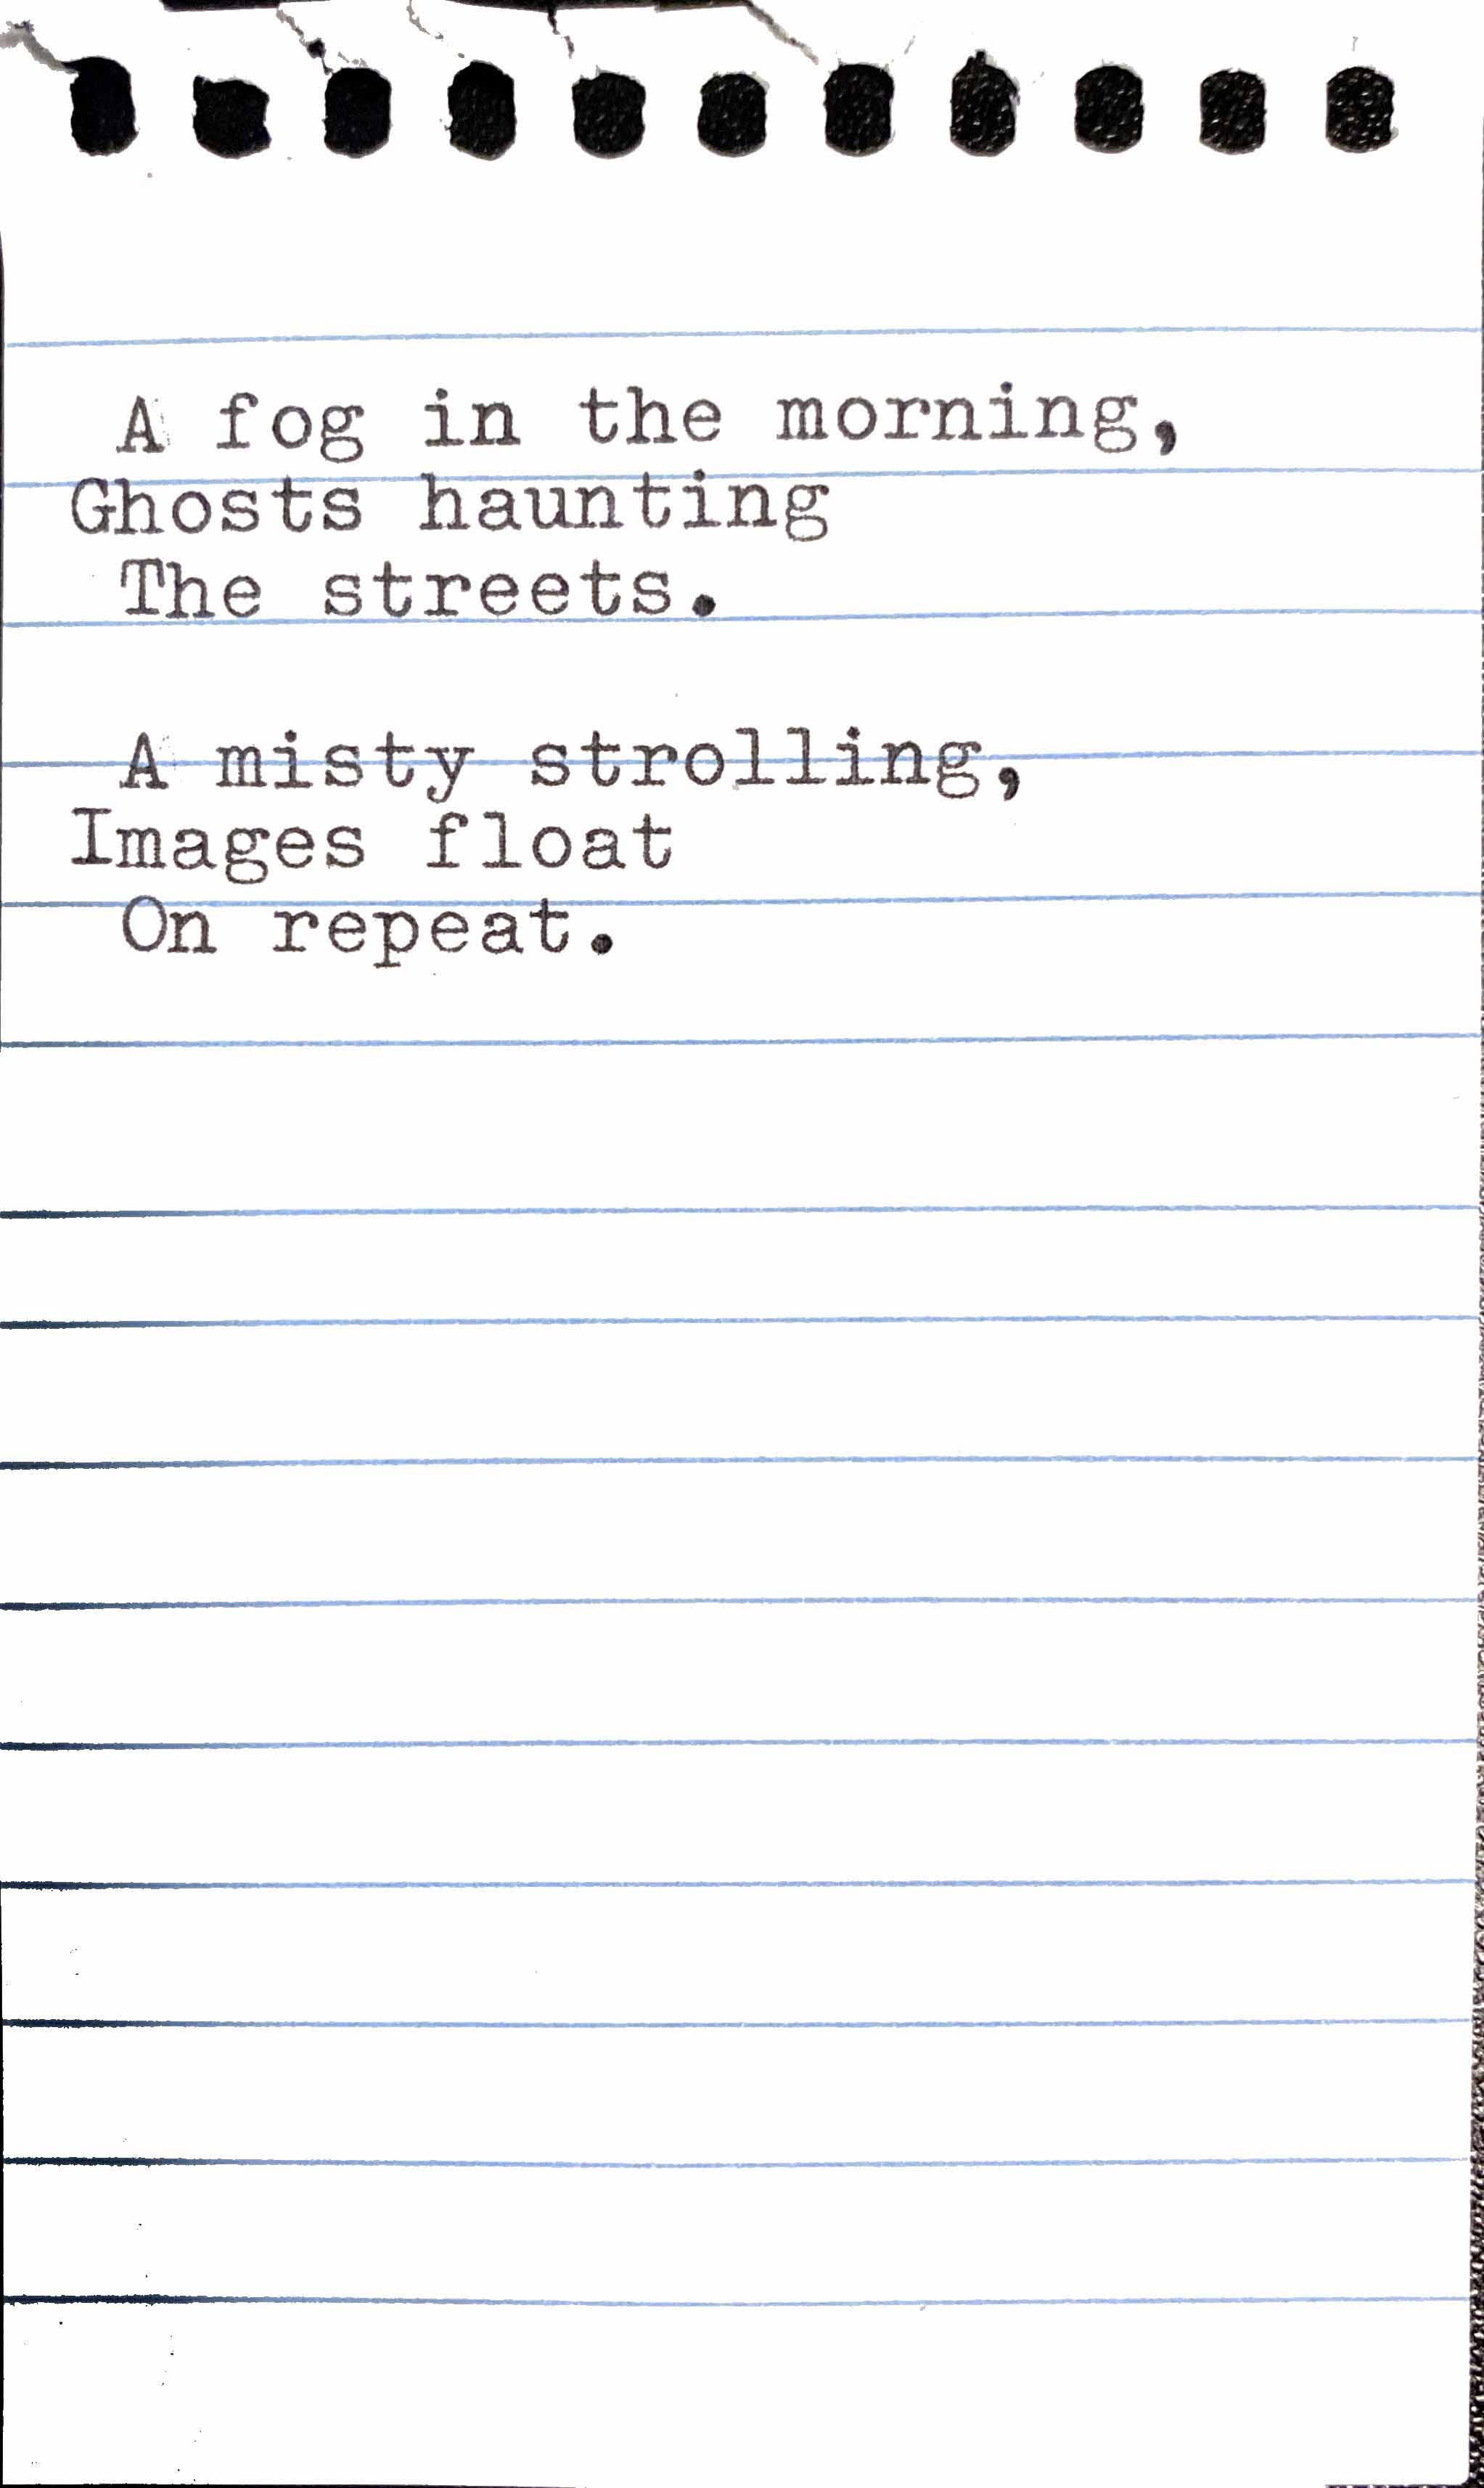 A fog in the morning,
Ghosts haunting
The streets.

A misty strolling,
Images float
On repeat.